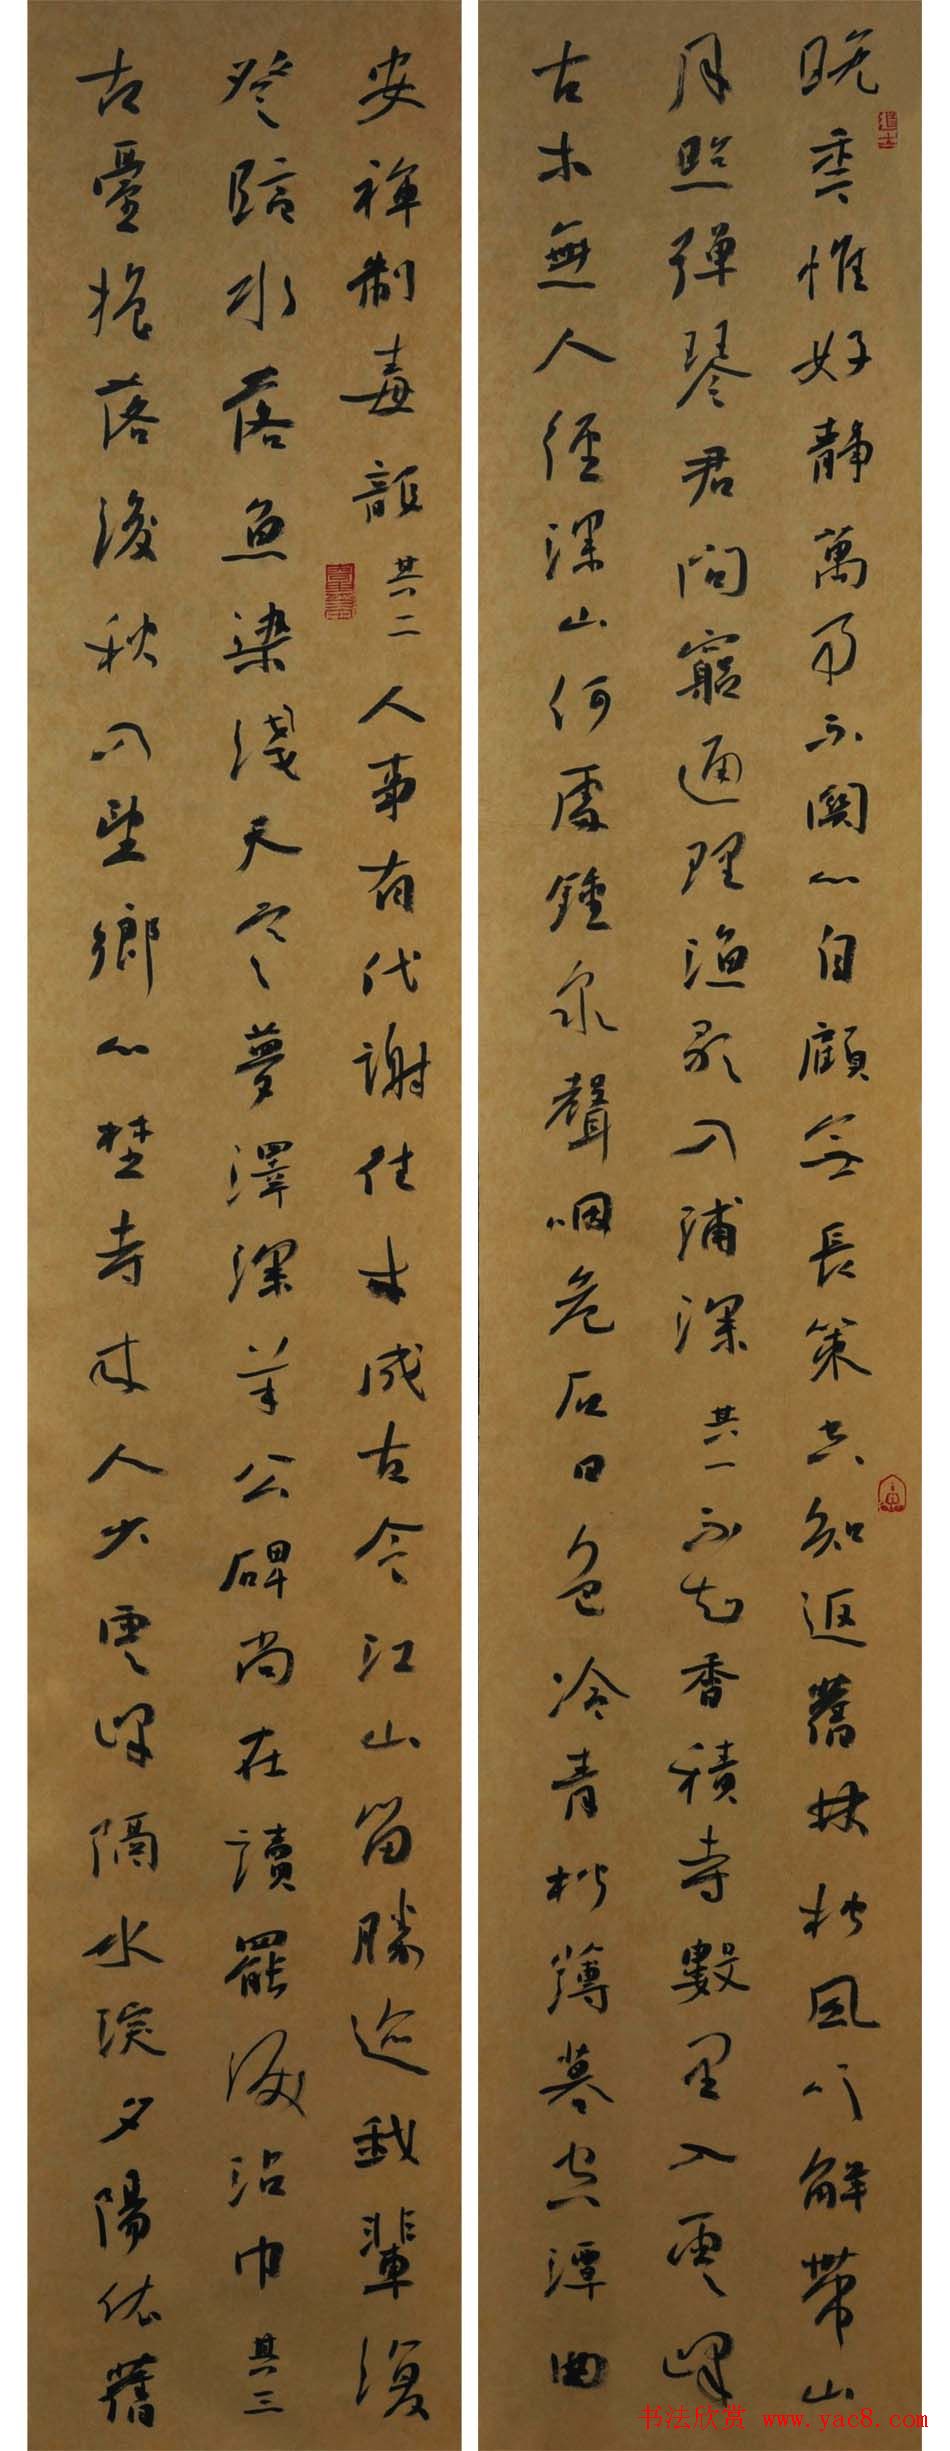 晚年惟好靜萬事不關心自顧無長策空知返舊林松風吹解帶山
月照彈琴君問窮通理漁歌入浦深其一不知香積寺數里入雲峰
古木無人徑深山何處鍾泉聲咽危石日色冷青松薄暮空潭曲
安禪制毒龍其二人事有代謝往來成古今江山留勝迹我輩復
登臨水落魚梁淺天寒夢澤深羊公碑尚在讀罷淚沾巾其三
古臺搖落後秋入望鄉心埜寺來人少雲峰隔水深夕陽依舊
书法欣赏 www.yac8.com